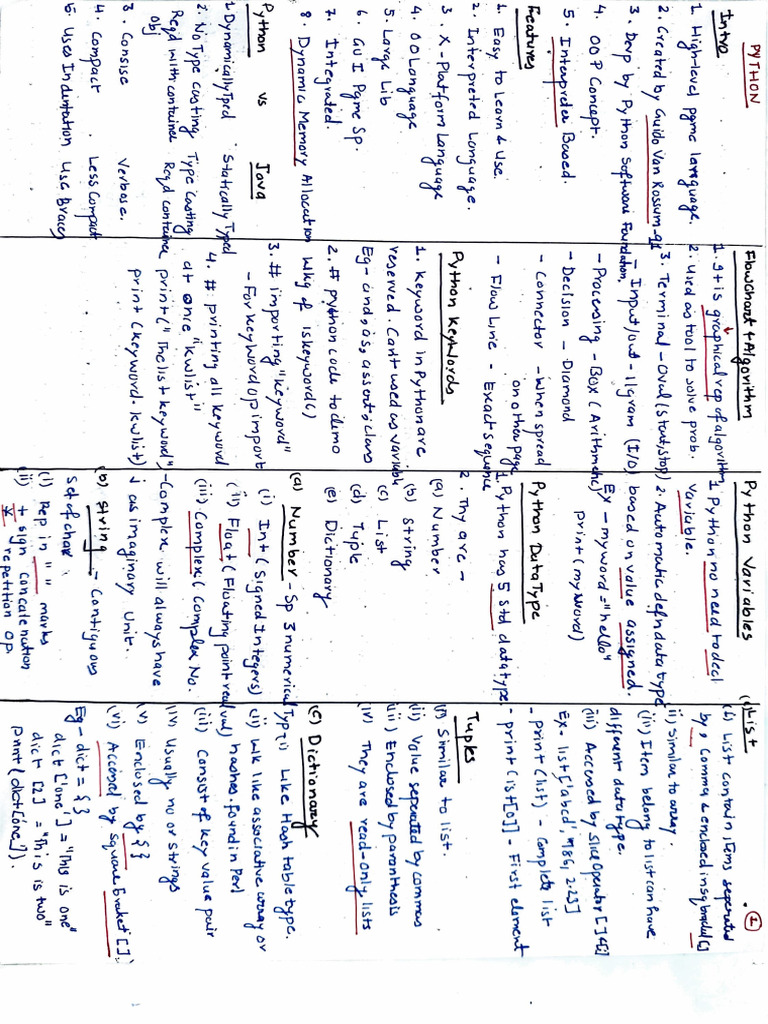 PYTHON
Intro
1. High-level pgme language.
2. Created by Guido Van Rossum-91
3. Devp by Python Software Foundation
4. OOP Concept.
5. Interpreter Based.
Features
1. Easy to Learn & Use.
2. Interpreted Language.
3. X-Platform Language
4. OO Language
5. Large Lib
6. GUI Pgme Sp.
7. Integrated.
8. Dynamic Memory Allocation
Python vs Java
1. Dynamically Typed Statically Typed
2. No Type Casting Type Casting
Reqd with container Reqd container
Obj
3. Consise Verbose.
4. Compact. Less Compact
5. Uses Indentation Use Braces
Flowchart & Algorithm
1. It is graphical rep of algorithm
2. Used as tool to solve prob.
3. Terminal - Oval (Start/stop)
- Input/out - 11gram (I/O)
- Processing - Box (Arithmetic)
- Decision - Diamond
- Connector - When spread
on other page
- Flow Line - Exact sequence
Python Keywords
1. Keyword in Python are
reserved. Cant used as variable
Eg - and, as, assert, class
2. # python code to demo
wkg of iskeyword()
3. # importing "keyword"
- For keyword op import
4. # printing all keyword
at once "kwlist"
print("The list keyword")
print (keyword.kwlist)
Python Variables
1. Python no need to decl
variable.
2. Automatic defn data type
based on value assigned.
Ex - myword = "hello"
print (myword)
Python DataType
1. Python has 5 Std datatype
2. Thy are -
(a) Number
(b) String
(c) List
(d) Tuple
(e) Dictionary
(a) Number - Sp 3 numerical Type
(i) Int (Signed Integers)
(ii) Float (Floating point real val)
(iii) Complex (Complex No.
- Complex will always have
j as imaginary Unit.
(b) String - Contiguous
set of char
(i) Rep in " " marks
(ii) + sign concatenation
* repetition op.
1
(c) List
(i) List contain items seperated
by , Comma & enclosed in sq bracket []
ii) Similar to array
(iii) Item belong to list can have
different data type.
(iii) Accessed by slice operator [] & [:]
Ex. list ['abcd', 786, 2.23]
- print (list) - Complete list
- print (ist[0]] - First element
Tuples
(i) Similar to list.
(ii) Value seperated by commas
(iii) Enclosed by paranthesis
(iv) They are read-only lists
(c) Dictionary
(i) Like Hash table type.
(ii) Wk like associative array or
hashes. found in Perl
(iii) Consist of key value pair
(iv Usually no or strings
(v) Enclosed by { }
(vi) Accessed by square bracket [].
Eg - dict = { }
dict ['one'] = "This is one"
dict [2] = "This is two"
print (dict[one']).